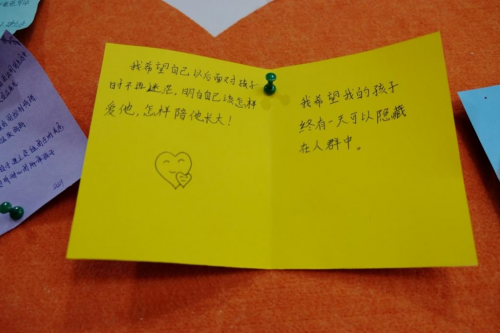 我希望自己以后面对孩子
时不再迷茫,明白自己该怎样
爱他,怎样陪他长大!
我希望我的孩子
终有一天可以隐藏
在人群中。